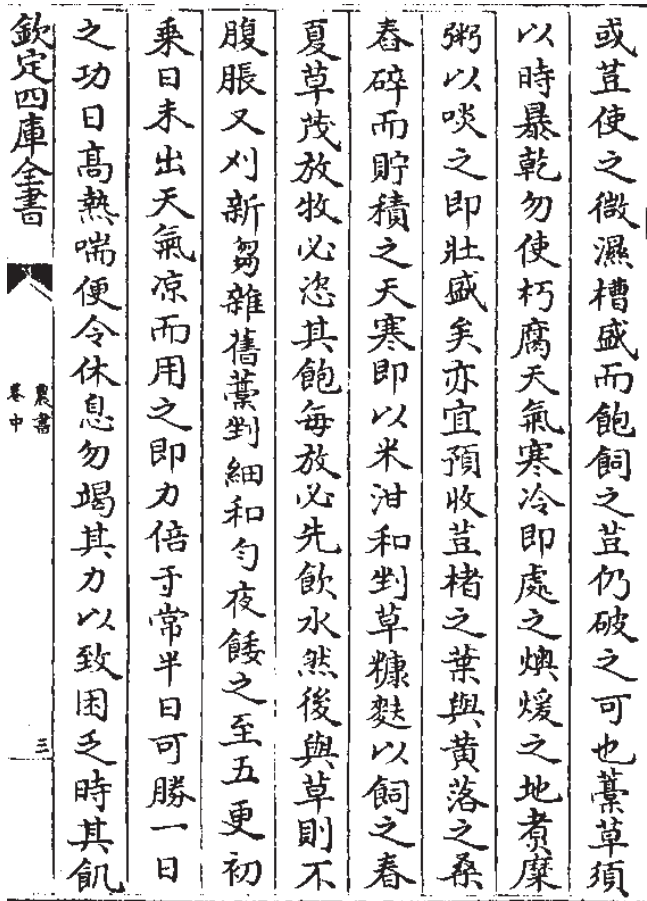 或荳使之微濕槽盛而飽飼之荳仍破之可也藁草須
以時暴乾勿使朽腐天氣寒冷即處之燠煖之地煮糜
粥以啖之即壯盛矣亦宜預收荳楮之葉與黄落之桑
舂碎而貯積之天寒即以米泔和剉草糠麩以飼之春
夏草茂放牧必恣其飽每放必先飲水然後與草則不
腹脹又刈新芻雜舊藁剉細和勻夜餧之至五更初
乗日未出天氣凉而用之即力倍于常半日可勝一日
之功日高熱喘便令休息勿竭其力以致困乏時其飢
欽定四庫全書
農書
卷中
三